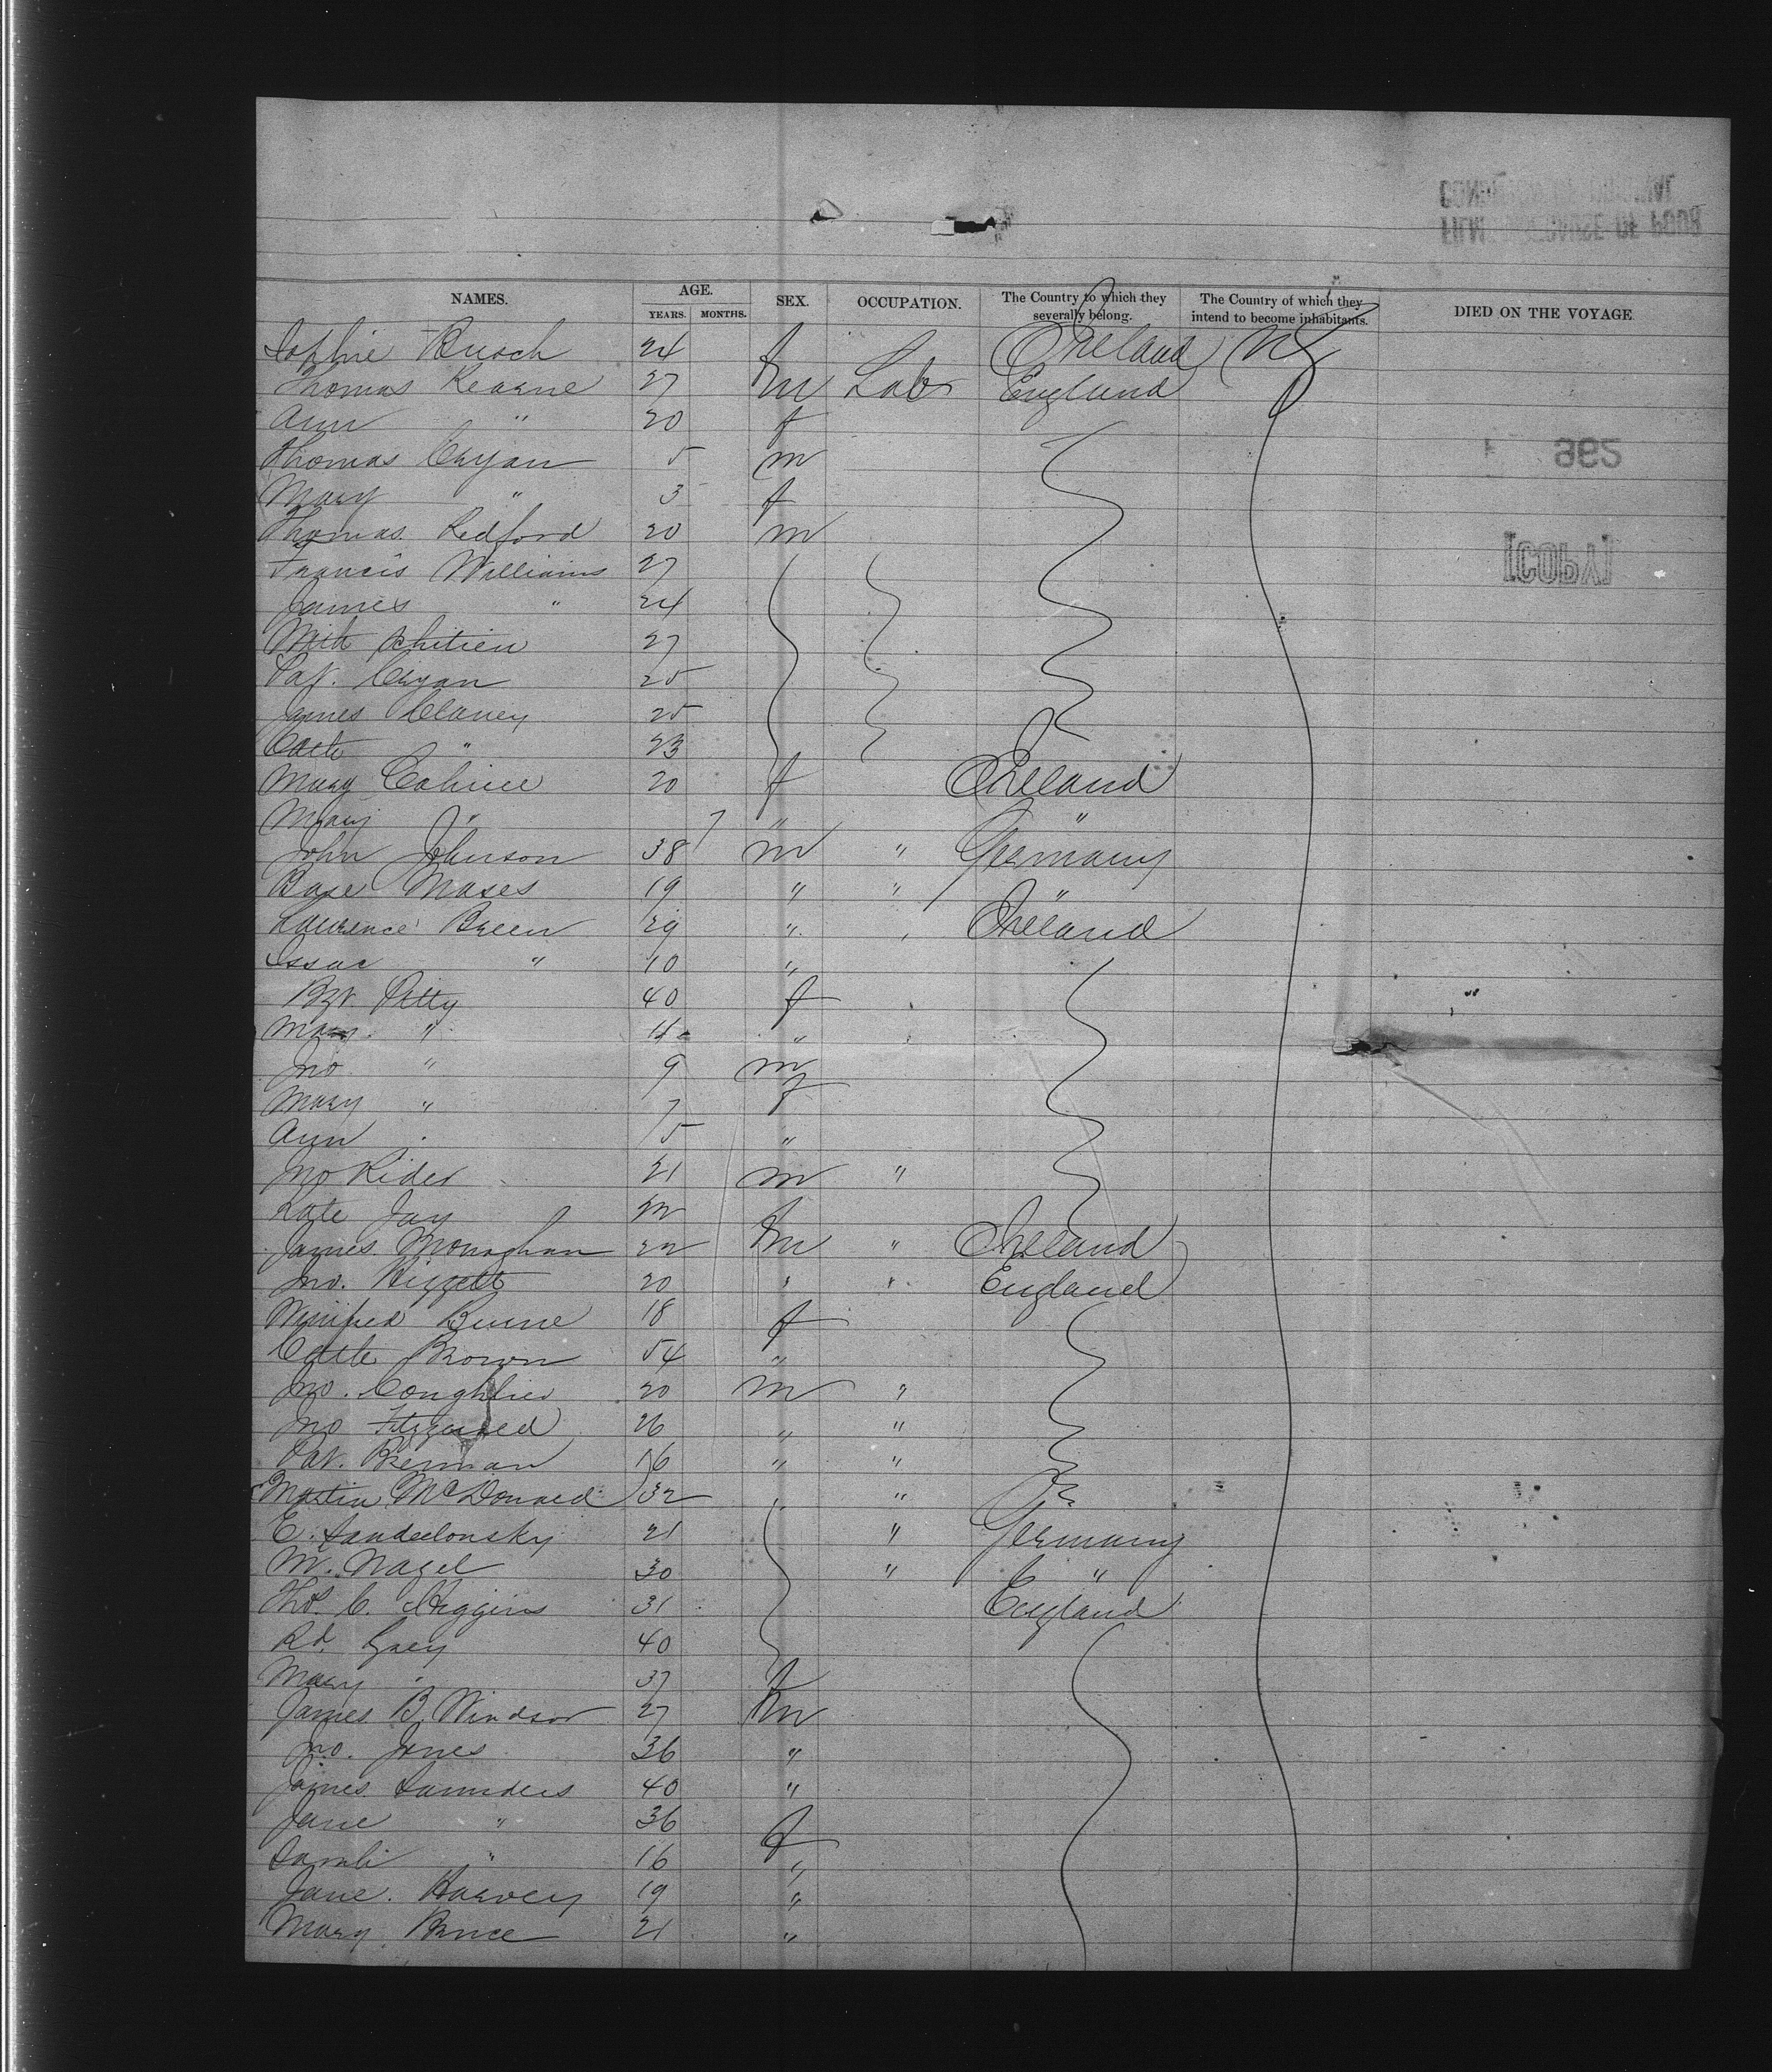 NAMES. AGE. YEARS. MONTHS. SEX. OCCUPATION. The Country to which they severally belong. The Country of which they intend to become inhabitants. DIED ON THE VOYAGE
Sophie Busch 24 f Ireland NY
Thomas Kearne 27 m Lab England
Ann " 20 f
Thomas Cryan 5 m
Mary " 3 f
Thomas Redford 20 m
Francis Williams 27
James " 24
27
Pat. Cryan 25
James Clancy 25
Cath " 23
Mary 20 f Ireland
Mary " 7 " "
John Johnson 38 m " Germany
Moses 19 " " "
Lawrence Breen 29 " Ireland
Issac " 10 "
Bgt Pitty 40 f
" "
Jno " 9 m
Mary " 7 f
Ann 5 "
Jno Rider 21 m "
Kate Jay f
James Monaghan 22 m " Ireland
Jno. 20 " " England
Winifred Burne 18 f
Cath Brown 54 "
Jno. Coughlin 20 m "
Jno Fitzgerald 26 " "
Pat. Brennan 16 " "
Martin McDonald 32 "
E. 21 " Germany
M. Nagel 30 " "
Thos. C. Higgins 31 England
Rd. Grey 40
Mary " 37 f
James B. Windsor 27 m
Jno. Jones 36 "
James Saunders 40 "
Jane " 36 f
Sarah " 16 "
Jane. Harvey 19 "
Mary Bruce 21 "
[COPY]